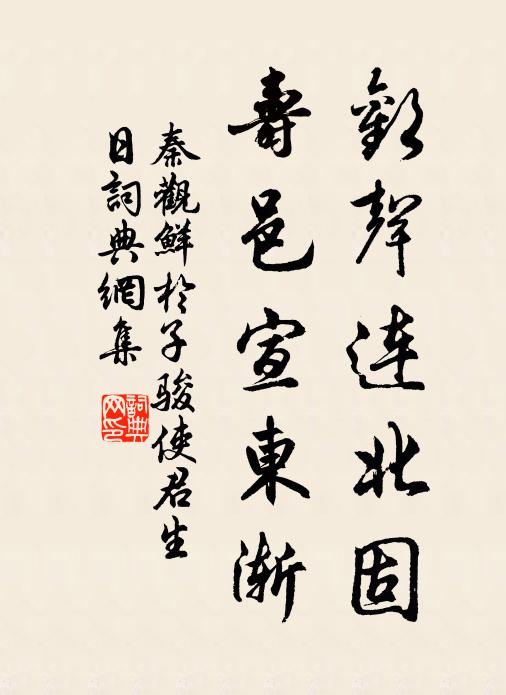 歡聲連北固
壽邑宣東漸
秦觀鮮於子駿使君生
日詞典網集
詞典网印